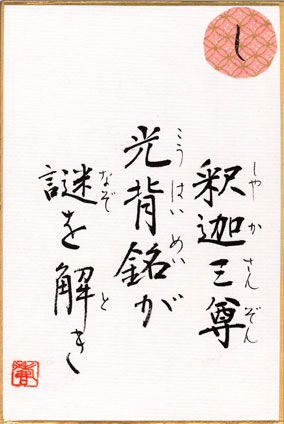 し
釈迦三尊
しゃかさんぞん
光背銘が
こうはいめい
謎を解き
なぞと